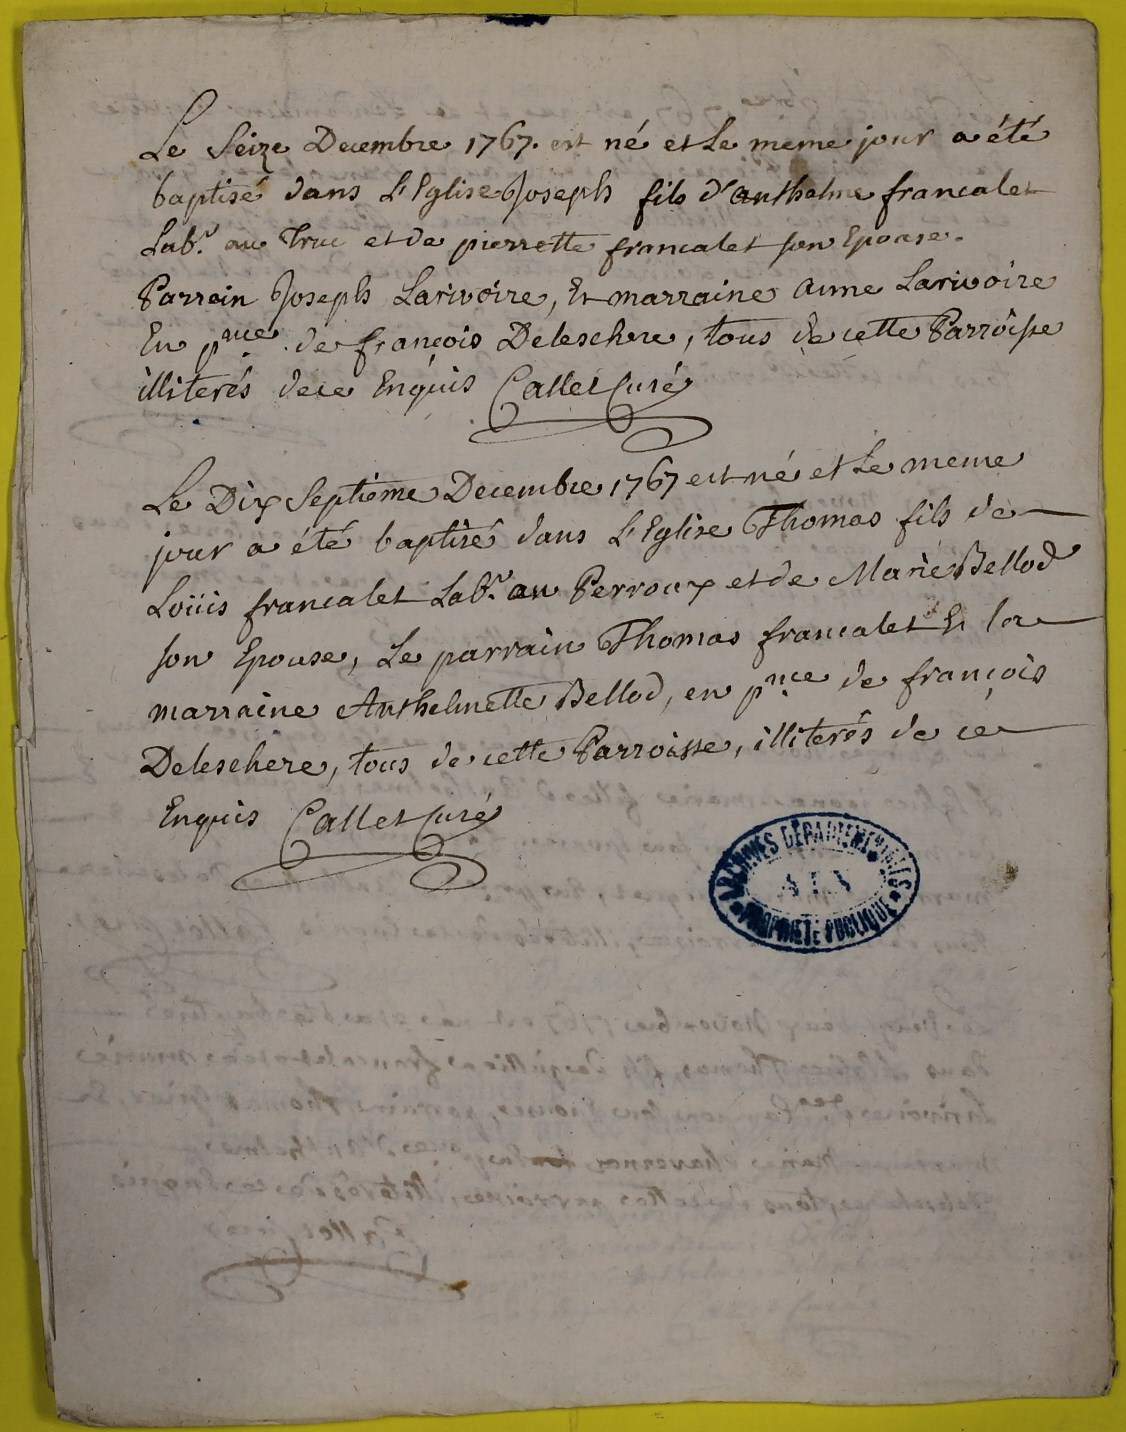 Le Seize Decembre 1767. est né et Le meme jour a été
baptisé dans L'Eglise Joseph fils d'anthelme francalet
Lab.r au Truc et de pierrette francalet son Epouse.
Parrain Joseph Larivoire, Et marraine anne Larivoire
En p.nce de françois Deleschere, tous de cette Parroisse
illiterés de ce Enquis Callet Curé
Le Dix Septieme Decembre 1767 est né et Le meme
jour a été baptisé dans L'Eglise Thomas fils de
Loüis francalet Lab.r au Perroux et de Marie Bellod
son Epouse, Le parrain Thomas francalet Et la
marraine Anthelmette Bellod, en p.nce de françois
Deleschere, tous de cette Parroisse, illiterés de ce
Enquis Callet Curé
ARCHIVES DÉPARTEMENTALES
AIN
PROPRIÉTÉ PUBLIQUE